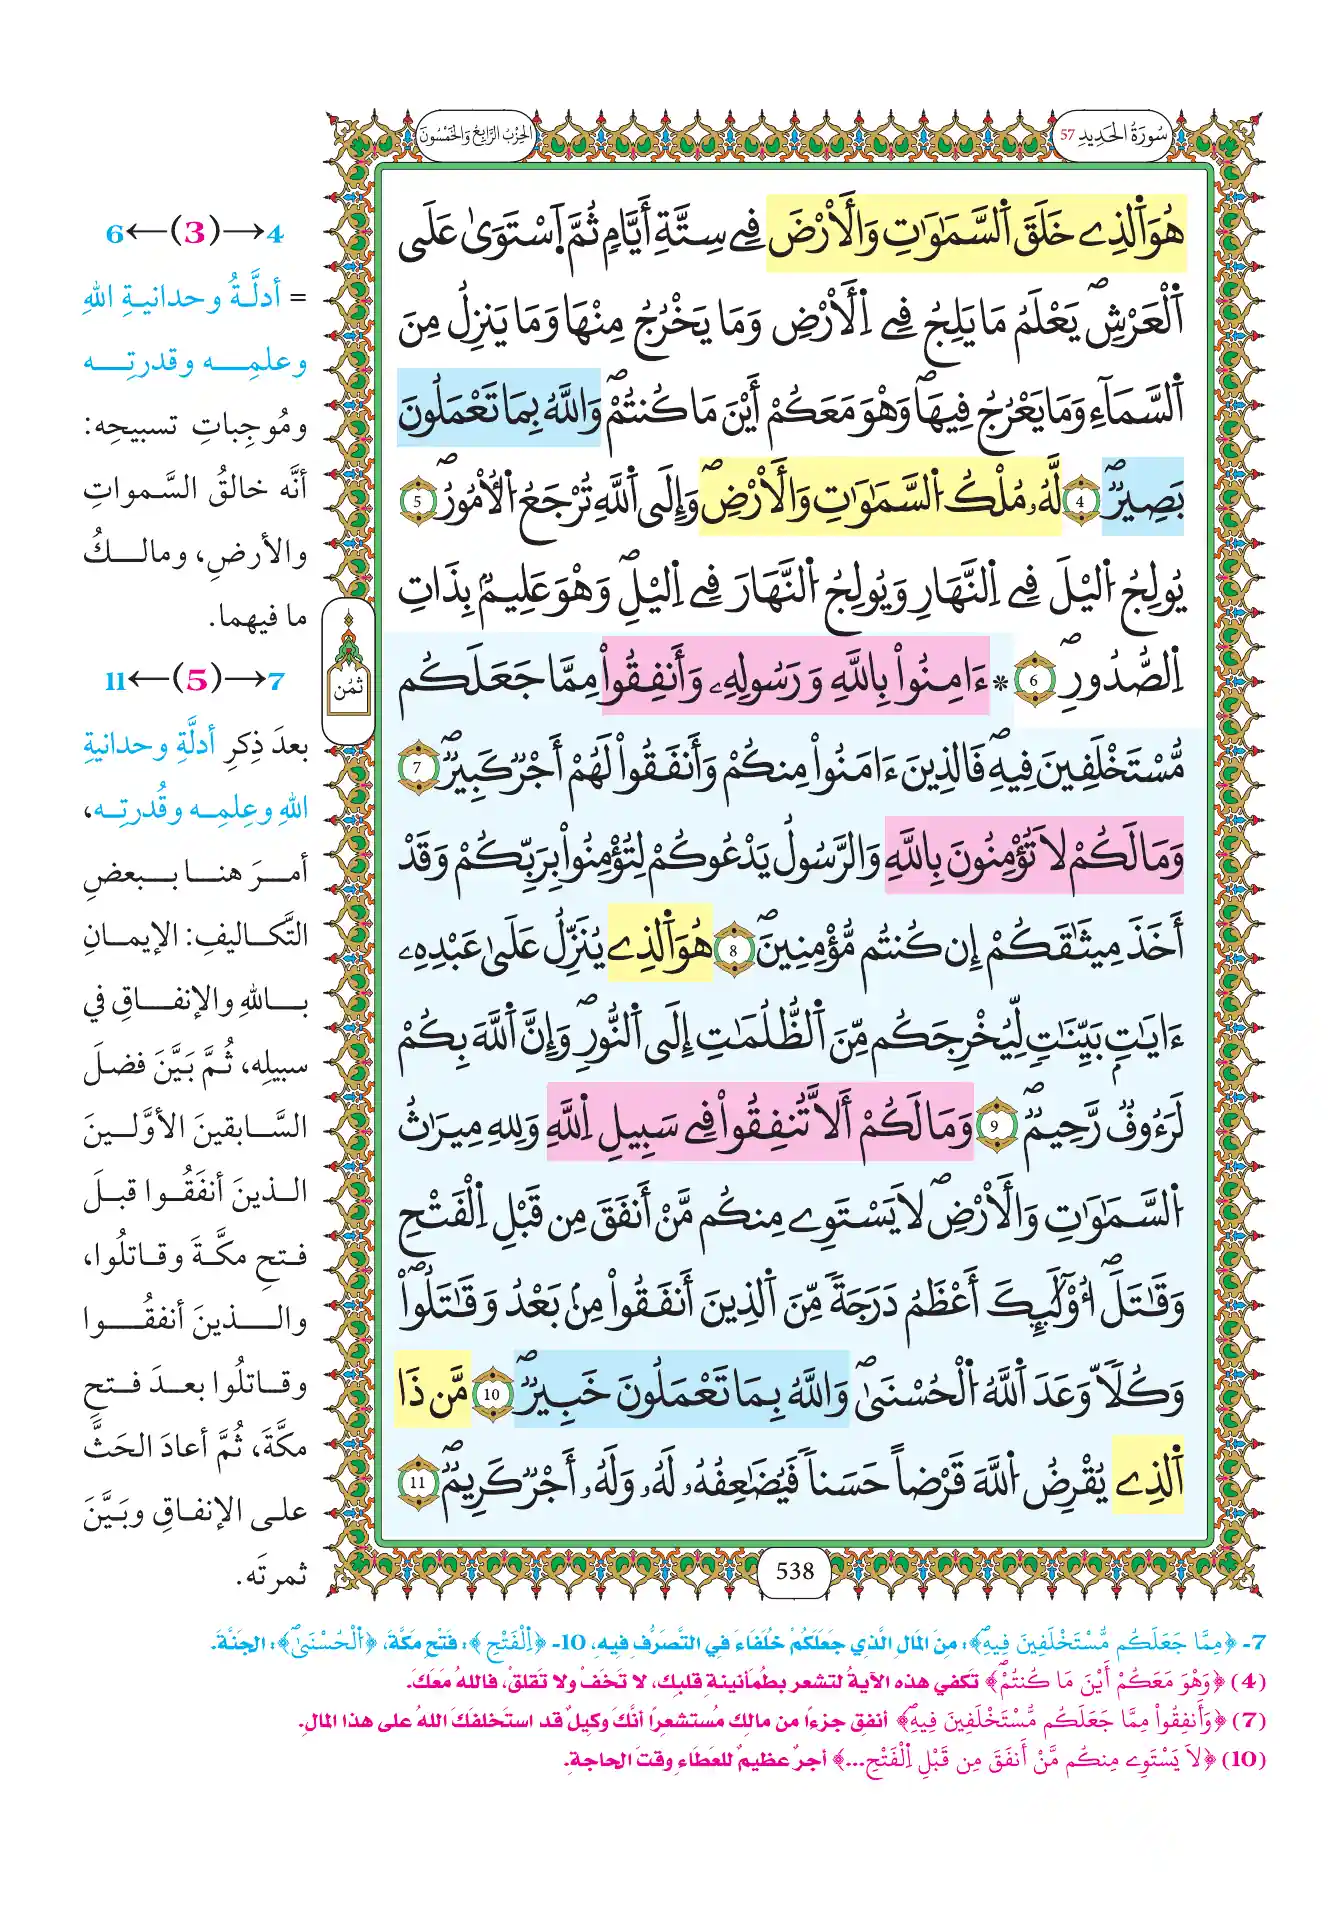 سُورَةُ الحَدِيدِ 57
الحِزْبُ الرَّابِعُ وَالخَمْسُونَ
هُوَ اَ۬لذِے خَلَقَ اَ۬لسَّمَٰوَٰتِ وَالَارْضَ فِے سِتَّةِ أَيَّامٖ ثُمَّ اَ۪سْتَو۪يٰ عَلَي
اَ۬لْعَرْشِۖ يَعْلَمُ مَا يَلِجُ فِے اِ۬لَارْضِ وَمَا يَخْرُجُ مِنْهَا وَمَا يَنزِلُ مِنَ
اَ۬لسَّمَآءِ وَمَا يَعْرُجُ فِيهَاۖ وَهُوَ مَعَكُمُۥٓ أَيْنَ مَا كُنتُمْۖ وَاللَّهُ بِمَا تَعْمَلُونَ
بَصِيرٞۖ 4 لَّهُۥ مُلْكُ اُ۬لسَّمَٰوَٰتِ وَالَارْضِۖ وَإِلَي اَ۬للَّهِ تُرْجَعُ اُ۬لُامُورُۖ 5
يُولِجُ اُ۬ليْلَ فِے اِ۬لنَّهَارِ وَيُولِجُ اُ۬لنَّهَارَ فِے اِ۬ليْلِۖ وَهُوَ عَلِيمُۢ بِذَاتِ
اِ۬لصُّدُورِۖ 6 * ءَامِنُواْ بِاللَّهِ وَرَسُولِهِۦ وَأَنفِقُواْ مِمَّا جَعَلَكُم
مُّسْتَخْلَفِينَ فِيهِۖ فَالذِينَ ءَامَنُواْ مِنكُمْ وَأَنفَقُواْ لَهُمُۥٓ أَجْرٞ كَبِيرٞۖ 7
وَمَا لَكُمْ لَا تُؤْمِنُونَ بِاللَّهِ وَالرَّسُولُ يَدْعُوكُمْ لِتُؤْمِنُواْ بِرَبِّكُمْ وَقَدَ
اَخَذَ مِيثَٰقَكُمُۥٓ إِن كُنتُم مُّؤْمِنِينَۖ 8 هُوَ اَ۬لذِے يُنَزِّلُ عَلَيٰ عَبْدِهِۦٓ
ءَايَٰتِۢ بَيِّنَٰتٖ لِّيُخْرِجَكُم مِّنَ اَ۬لظُّلُمَٰتِ إِلَي اَ۬لنُّورِۖ وَإِنَّ اَ۬للَّهَ بِكُمْ
لَرَءُوفٞ رَّحِيمٞۖ 9 وَمَا لَكُمُۥٓ أَلَّا تُنفِقُواْ فِے سَبِيلِ اِ۬للَّهِ وَلِلهِ مِيرَٰثُ
اُ۬لسَّمَٰوَٰتِ وَالَارْضِۖ لَا يَسْتَوِے مِنكُم مَّنَ اَنفَقَ مِن قَبْلِ اِ۬لْفَتْحِ
وَقَٰتَلَۖ أُوْلَٰٓئِكَ أَعْظَمُ دَرَجَةٗ مِّنَ اَ۬لذِينَ أَنفَقُواْ مِنۢ بَعْدُ وَقَٰتَلُواْۖ
وَكُلّاٗ وَعَدَ اَ۬للَّهُ اُ۬لْحُسْن۪يٰۖ وَاللَّهُ بِمَا تَعْمَلُونَ خَبِيرٞۖ 10 مَّن ذَا
اَ۬لذِے يُقْرِضُ اُ۬للَّهَ قَرْضاً حَسَناٗ فَيُضَٰعِفُهُۥ لَهُۥ وَلَهُۥٓ أَجْرٞ كَرِيمٞۖ 11
ثُمُن
538
4→(3)←6
= أدلَّةُ وحدانيةِ اللهِ
وعلمِه وقدرتِه
ومُوجِباتِ تسبيحِه:
أنَّه خالقُ السَّمواتِ
والأرضِ، ومالكُ
ما فيهما.
7→(5)←11
بعدَ ذِكرِ أدلَّةِ وحدانيةِ
اللهِ وعِلمِه وقُدرتِه،
أمرَ هنا ببعضِ
التَّكاليفِ: الإيمانِ
باللهِ والإنفاقِ في
سبيلِه، ثُمَّ بَيَّنَ فضلَ
السَّابقينَ الأوَّلينَ
الذينَ أنفَقُوا قبلَ
فتحِ مكَّةَ وقاتلُوا،
والذينَ أنفقُوا
وقاتلُوا بعدَ فتحِ
مكَّةَ، ثُمَّ أعادَ الحَثَّ
على الإنفاقِ وبَيَّنَ
ثمرتَه.
7- ﴿مِمَّا جَعَلَكُم مُّسْتَخْلَفِينَ فِيهِۖ﴾: مِنَ المَالِ الَّذِي جَعَلَكُمْ خُلَفَاءَ فِي التَّصَرُّفِ فِيهِ، 10- ﴿اِ۬لْفَتْحِ﴾: فَتْحِ مَكَّةَ، ﴿اُ۬لْحُسْن۪يٰۖ﴾: الجَنَّةَ.
(4) ﴿وَهُوَ مَعَكُمُۥٓ أَيْنَ مَا كُنتُمْۖ﴾ تكفي هذه الآيةُ لتشعر بطُمأنينةِ قلبِك، لا تَخَفْ ولا تَقلقْ، فاللهُ مَعَكَ.
(7) ﴿وَأَنفِقُواْ مِمَّا جَعَلَكُم مُّسْتَخْلَفِينَ فِيهِۖ﴾ أنفِق جزءًا من مالِك مُستشعرًا أنَّكَ وكيلٌ قد استَخلفَكَ اللهُ على هذا المالِ.
(10) ﴿لَا يَسْتَوِے مِنكُم مَّنَ اَنفَقَ مِن قَبْلِ اِ۬لْفَتْحِ...﴾ أجرٌ عظيمٌ للعَطَاءِ وقتَ الحاجةِ.